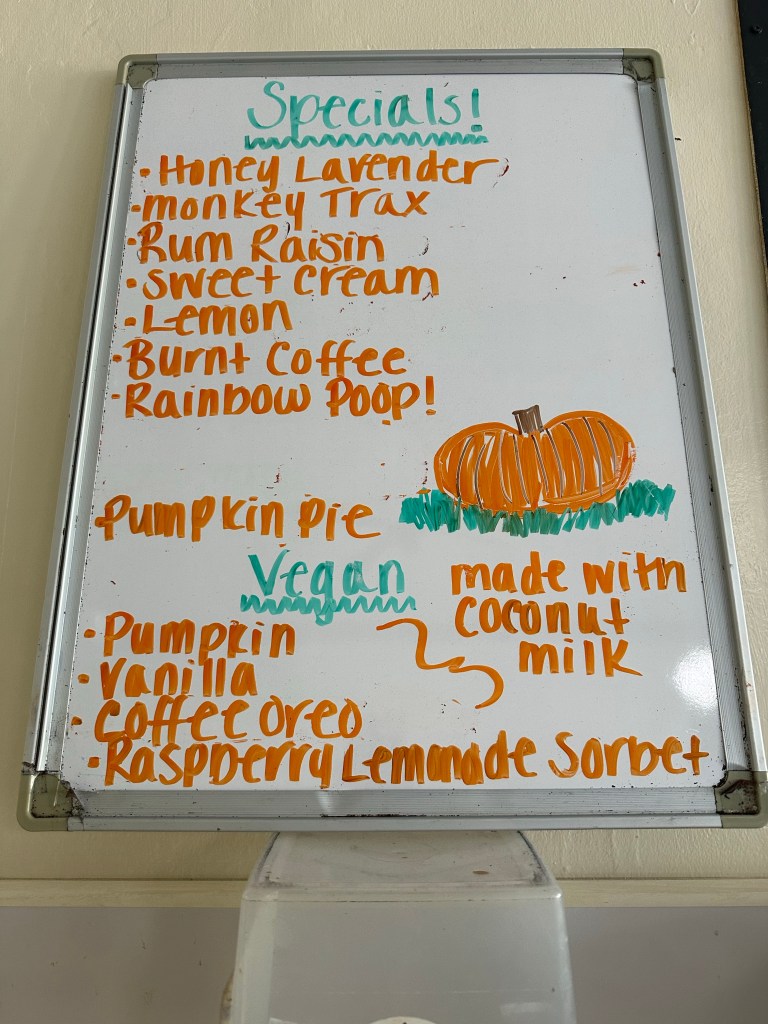 Specials!
·Honey Lavender
·monkey Trax
·Rum Raisin
·sweet cream
·Lemon
·Burnt Coffee
·Rainbow Poop!
·Pumpkin pie
Vegan
made with
coconut
milk
·Pumpkin
·vanilla
·coffee oreo
·Raspberry Lemonade Sorbet